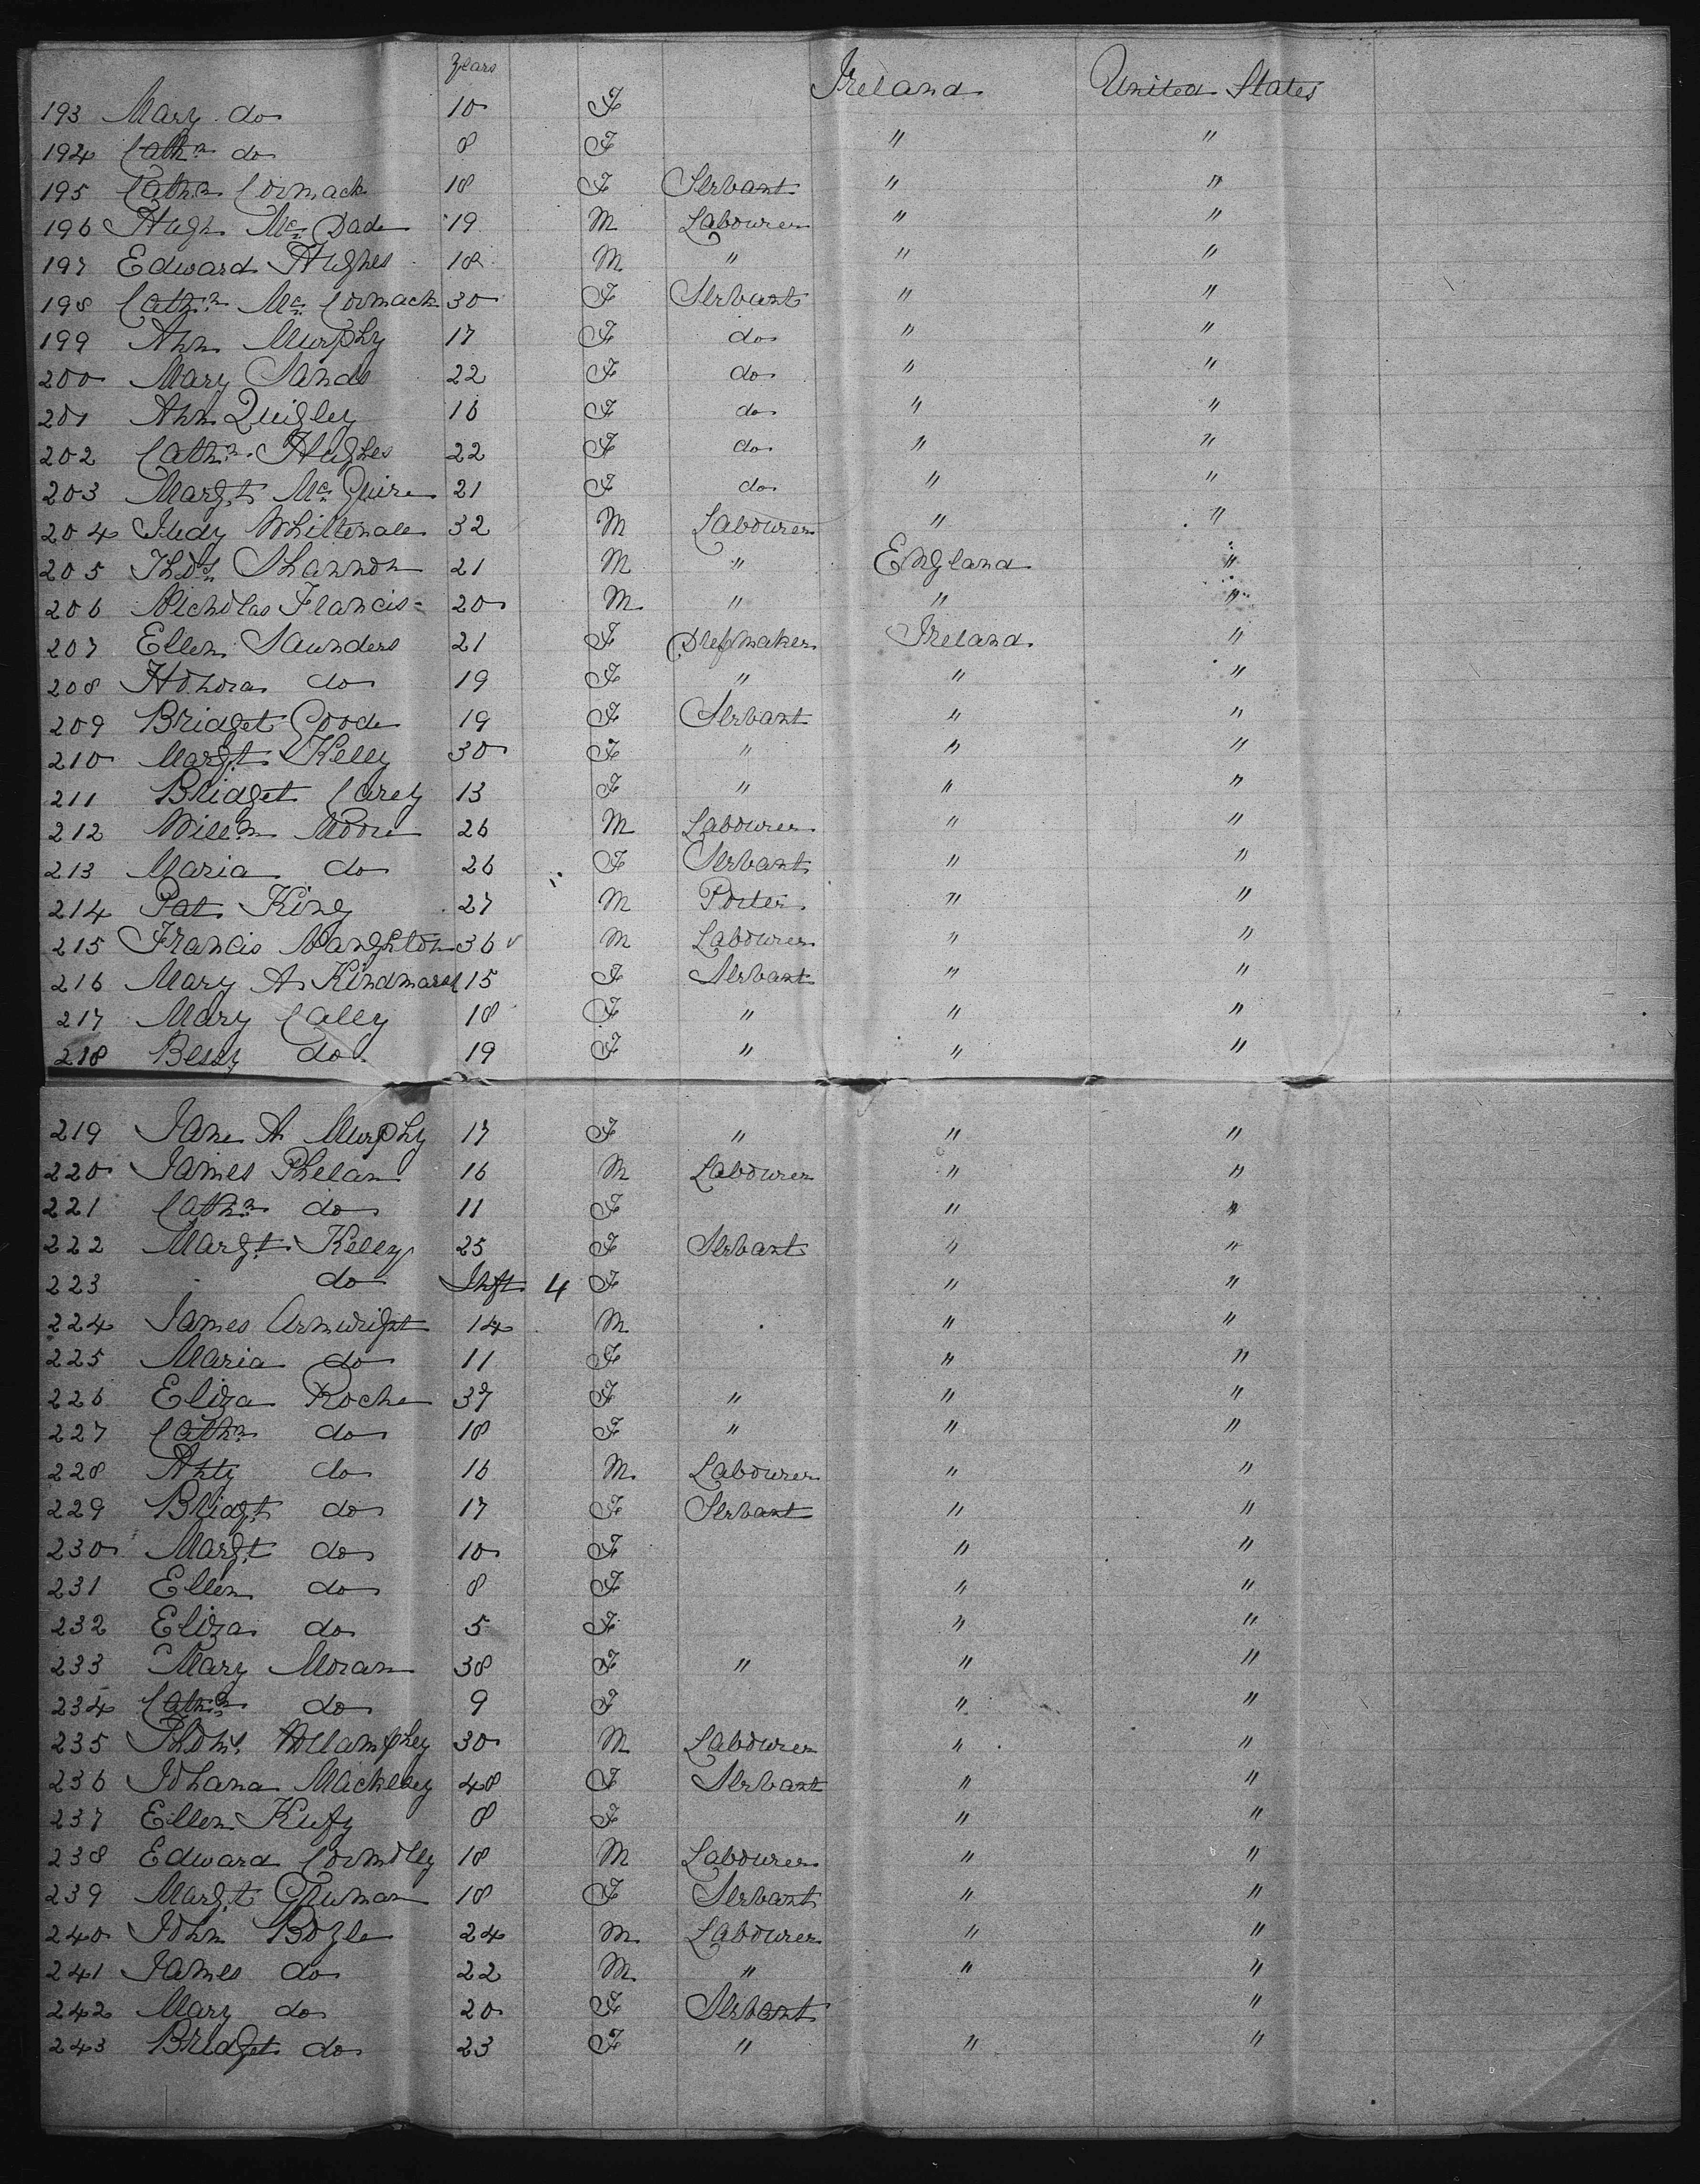 Years
193 Mary do 10 F Ireland United States
194 Cathn do 8 F " "
195 Cathn Cormack 18 F Servant " "
196 Hugh Mc Dade 19 M Labourer " "
197 Edward Hughes 18 M " " "
198 Cathn Mc Cormack 30 F Servant " "
199 Ann Murphy 17 F do " "
200 Mary Sands 22 F do " "
201 Ann Quigley 16 F do " "
202 Cathn Hughes 22 F do " "
203 Margt Mc Guire 21 F do " "
204 32 M Labourer " "
205 Thos Shannon 21 M " England "
206 Nicholas Francis 20 M " " "
207 Ellen Saunders 21 F Dressmaker Ireland "
208 Honora do 19 F " " "
209 Bridget Goode 19 F Servant " "
210 Margt Kelly 30 F " " "
211 Bridget Carey 13 F " " "
212 Willm Moore 26 M Labourer " "
213 Maria do 26 F Servant " "
214 Pat King 27 M Porter " "
215 Francis Naughton 36 M Labourer " "
216 Mary A Kindmarsh 15 F Servant " "
217 Mary Caley 18 F " " "
218 Bessy do 19 F " " "
219 Jane A Murphy 17 F " " "
220 James Phelan 16 M Labourer " "
221 Cathn do 11 F " "
222 Margt Kelly 25 F Servant " "
223 do Inft 4 F " "
224 James Armwright 14 M " "
225 Maria do 11 F " "
226 Eliza Roche 37 F " " "
227 Cathn do 18 F " " "
228 Anty do 16 M Labourer " "
229 Bridgt do 17 F Servant " "
230 Margt do 10 F " "
231 Ellen do 8 F " "
232 Eliza do 5 F " "
233 Mary Moran 38 F " " "
234 Cathn do 9 F " "
235 Thoms 30 M Labourer " "
236 Johana Mackesey 48 F Servant " "
237 Ellen 8 F " "
238 Edward Cormolly 18 M Labourer " "
239 Margt 18 F Servant " "
240 John Bogle 24 M Labourer " "
241 James do 22 M " " "
242 Mary do 20 F Servant "
243 Bridget do 23 F " " "